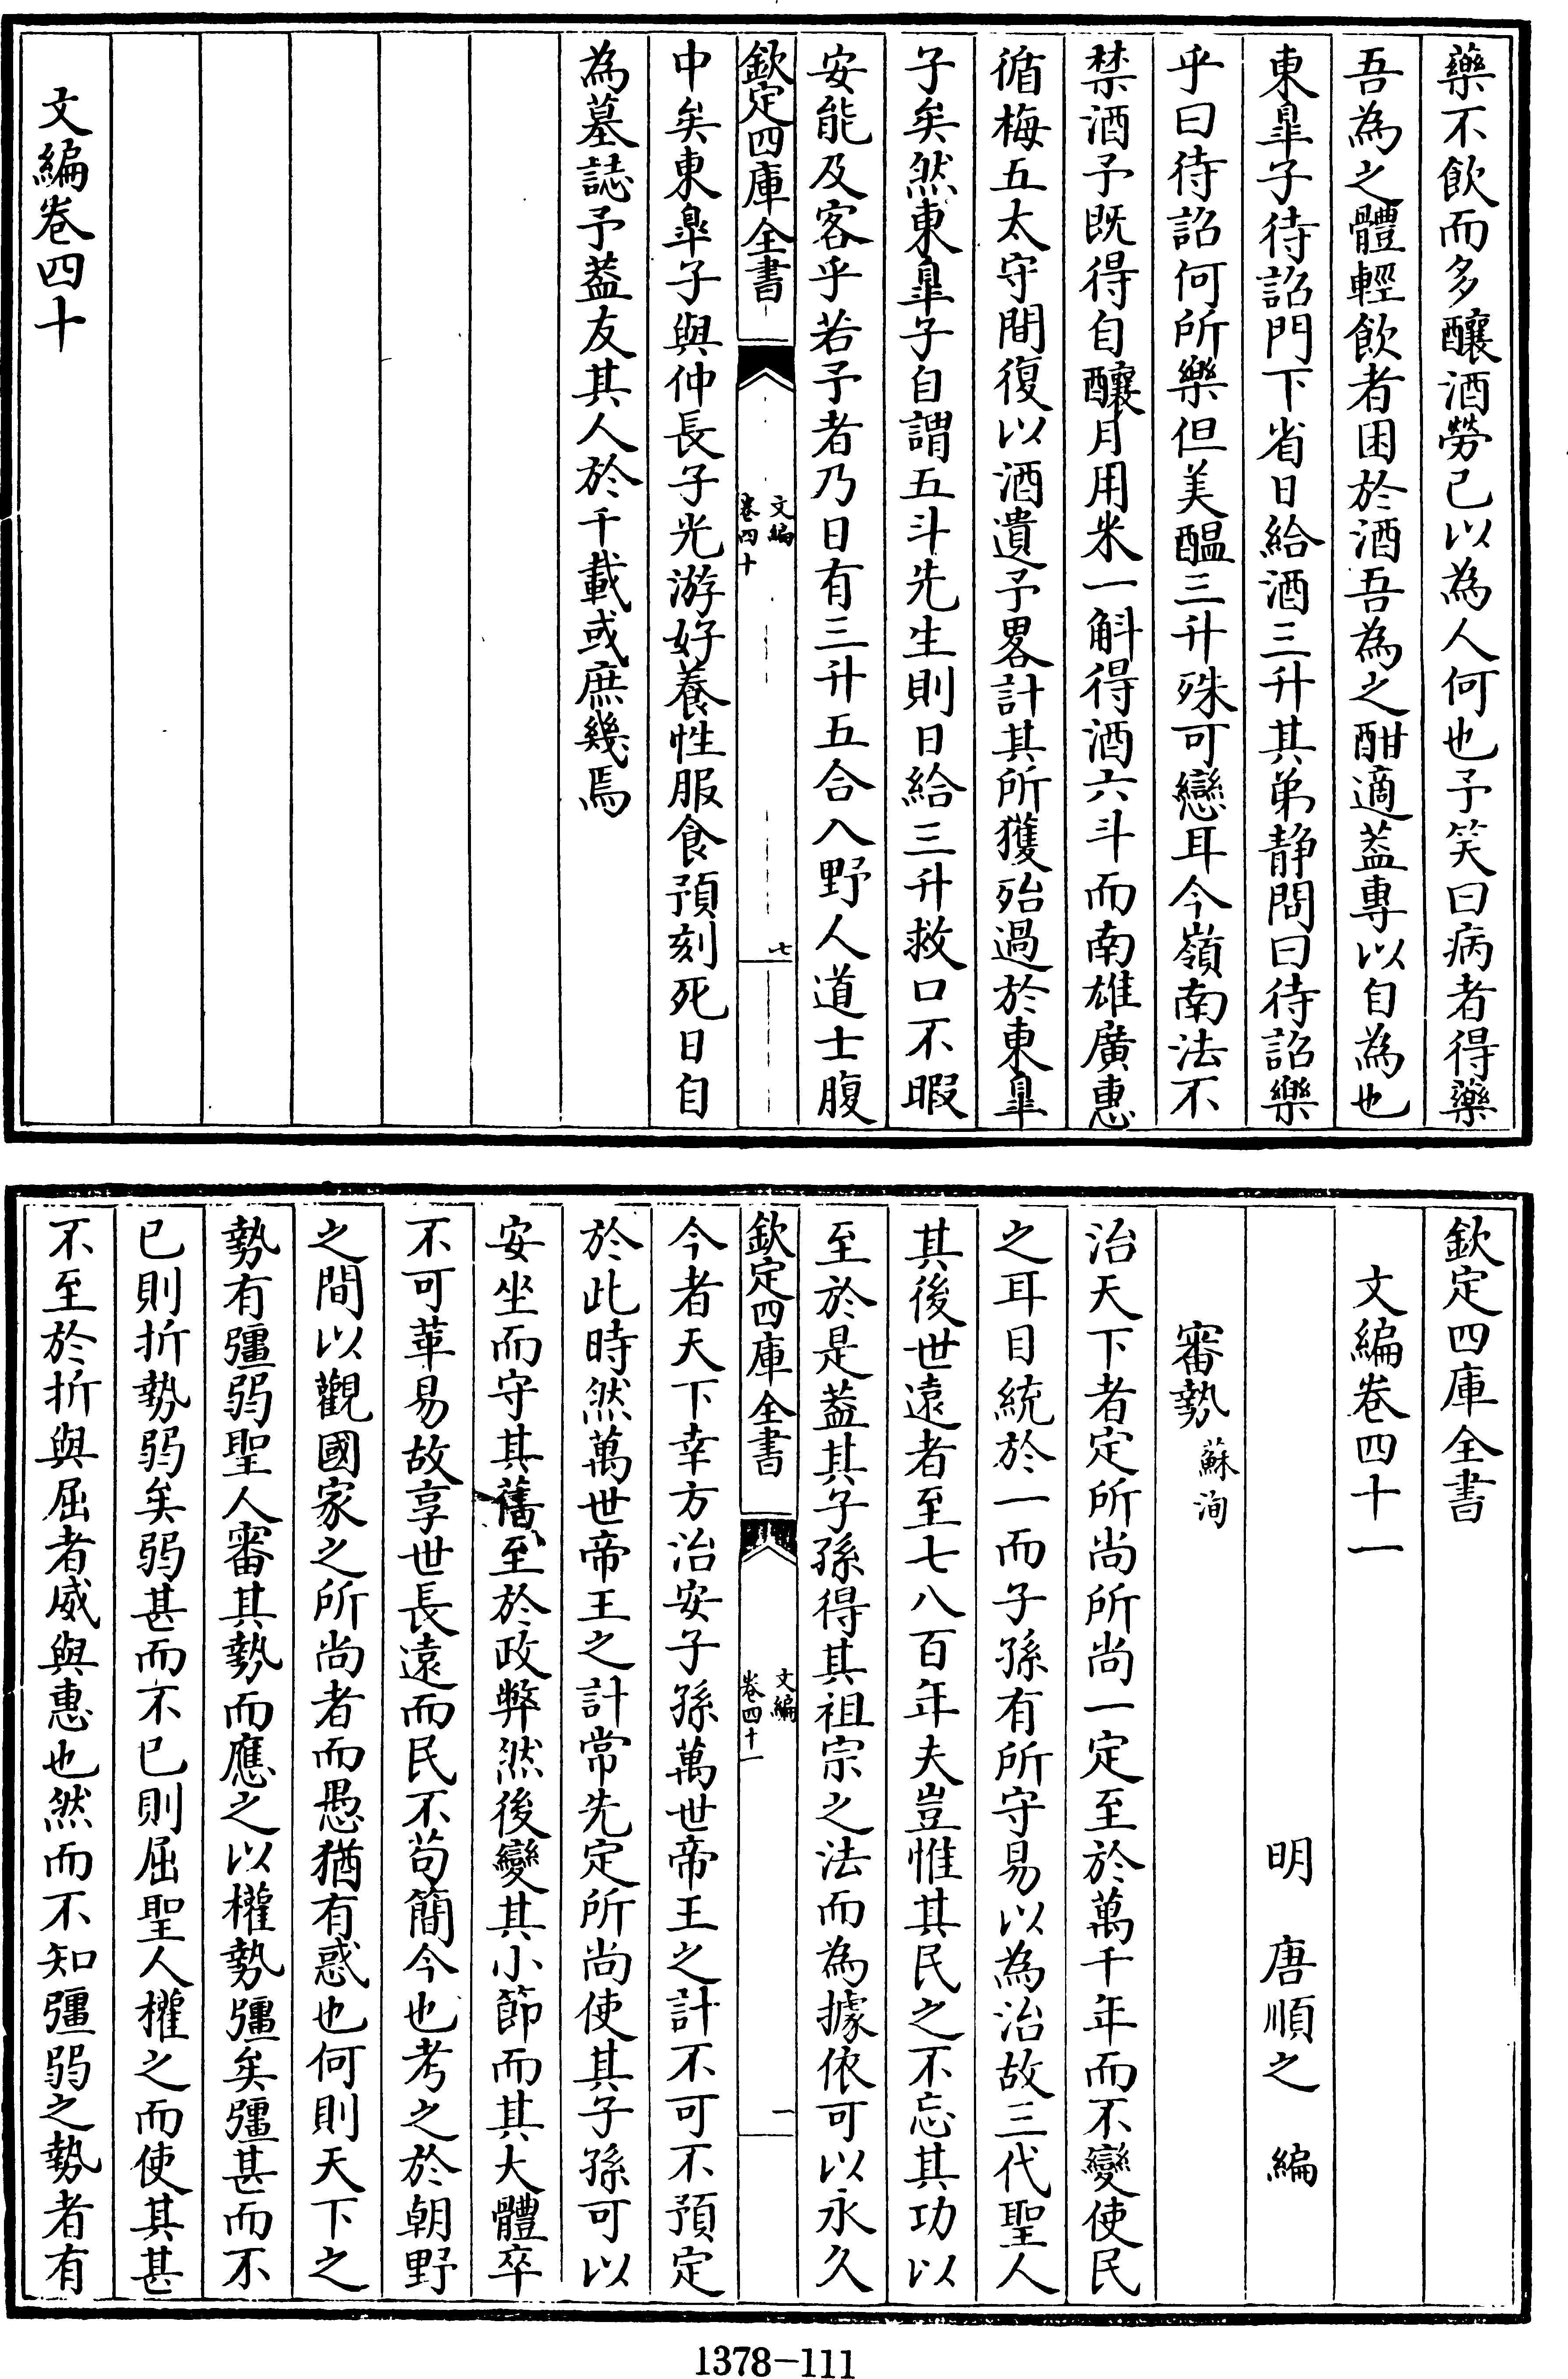 藥不飲而多釀酒勞己以為人何也予笑曰病者得藥
吾為之體輕飲者困於酒吾為之酣適葢專以自為也
東臯子待詔門下省日給酒三升其弟静問曰待詔樂
乎曰待詔何所樂但美醖三升殊可戀耳今嶺南法不
禁酒予既得自釀月用米一斛得酒六斗而南雄廣惠
循梅五太守間復以酒遺予畧計其所獲殆過於東臯
子矣然東臯子自謂五斗先生則日給三升救口不暇
安能及客乎若予者乃日有三升五合入野人道士腹
欽定四庫全書
文編
卷四十
七
中矣東臯子與仲長子光游好養性服食預刻死日自
為墓誌予葢友其人於千載或庶幾焉
文編卷四十
欽定四庫全書
文編卷四十一
明 唐順之 編
審勢 蘇洵
治天下者定所尚所尚一定至於萬千年而不變使民
之耳目統於一而子孫有所守易以為治故三代聖人
其後世遠者至七八百年夫豈惟其民之不忘其功以
至於是葢其子孫得其祖宗之法而為據依可以永久
欽定四庫全書
文編
卷四十一
一
今者天下幸方治安子孫萬世帝王之計不可不預定
於此時然萬世帝王之計常先定所尚使其子孫可以
安坐而守其舊至於政弊然後變其小節而其大體卒
不可革易故享世長遠而民不苟簡今也考之於朝野
之間以觀國家之所尚者而愚猶有惑也何則天下之
勢有彊弱聖人審其勢而應之以權勢彊矣彊甚而不
已則折勢弱矣弱甚而不已則屈聖人權之而使其甚
不至於折與屈者威與惠也然而不知彊弱之勢者有
1378-111